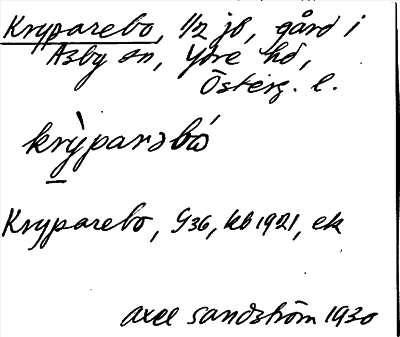 Kryparebo, 1/2 jb, gård i
Asby sn, Ydre hd,
Österg. l.
krỳparəbó
Kryparebo, G36, kb 1921, ek
Axel Sandström 1930